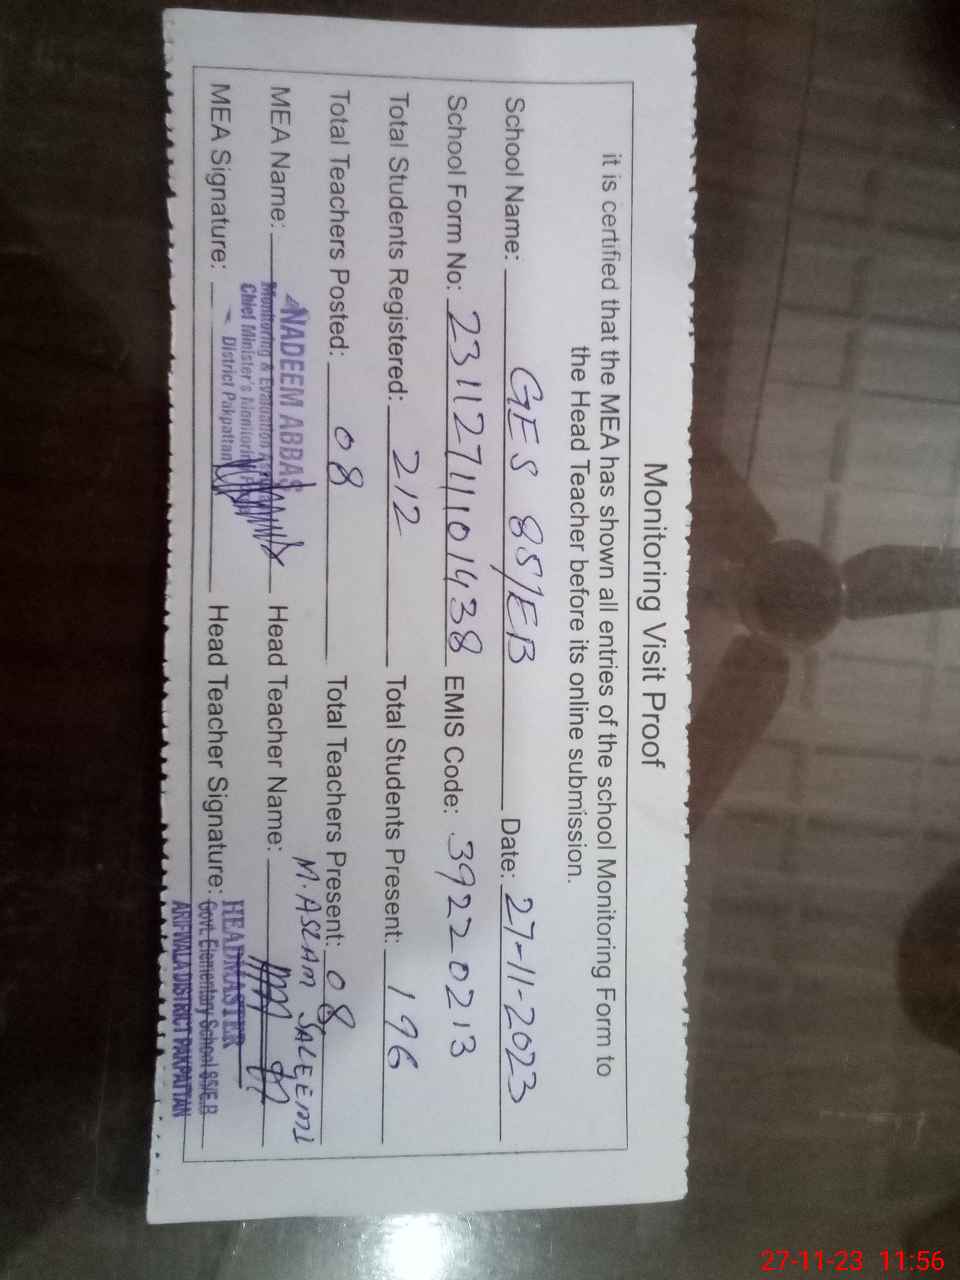 Monitoring Visit Proof
it is certified that the MEA has shown all entries of the school Monitoring Form to
the Head Teacher before its online submission.
School Name: GES 85/EB Date: 27-11-2023
School Form No: 23112711101438 EMIS Code: 39220213
Total Students Registered: 212 Total Students Present: 196
Total Teachers Posted: 08 Total Teachers Present: 08
MEA Name: NADEEM ABBAS Head Teacher Name: M. ASLAM SALEEMI
Monitoring & Evaluation
Chief Minister's Monitoring
District Pakpattan
MEA Signature: Head Teacher Signature:
HEADMASTER
Govt. Elementary School 85/E.B
ARIFWALA DISTRICT PAKPATTAN
27-11-23 11:56